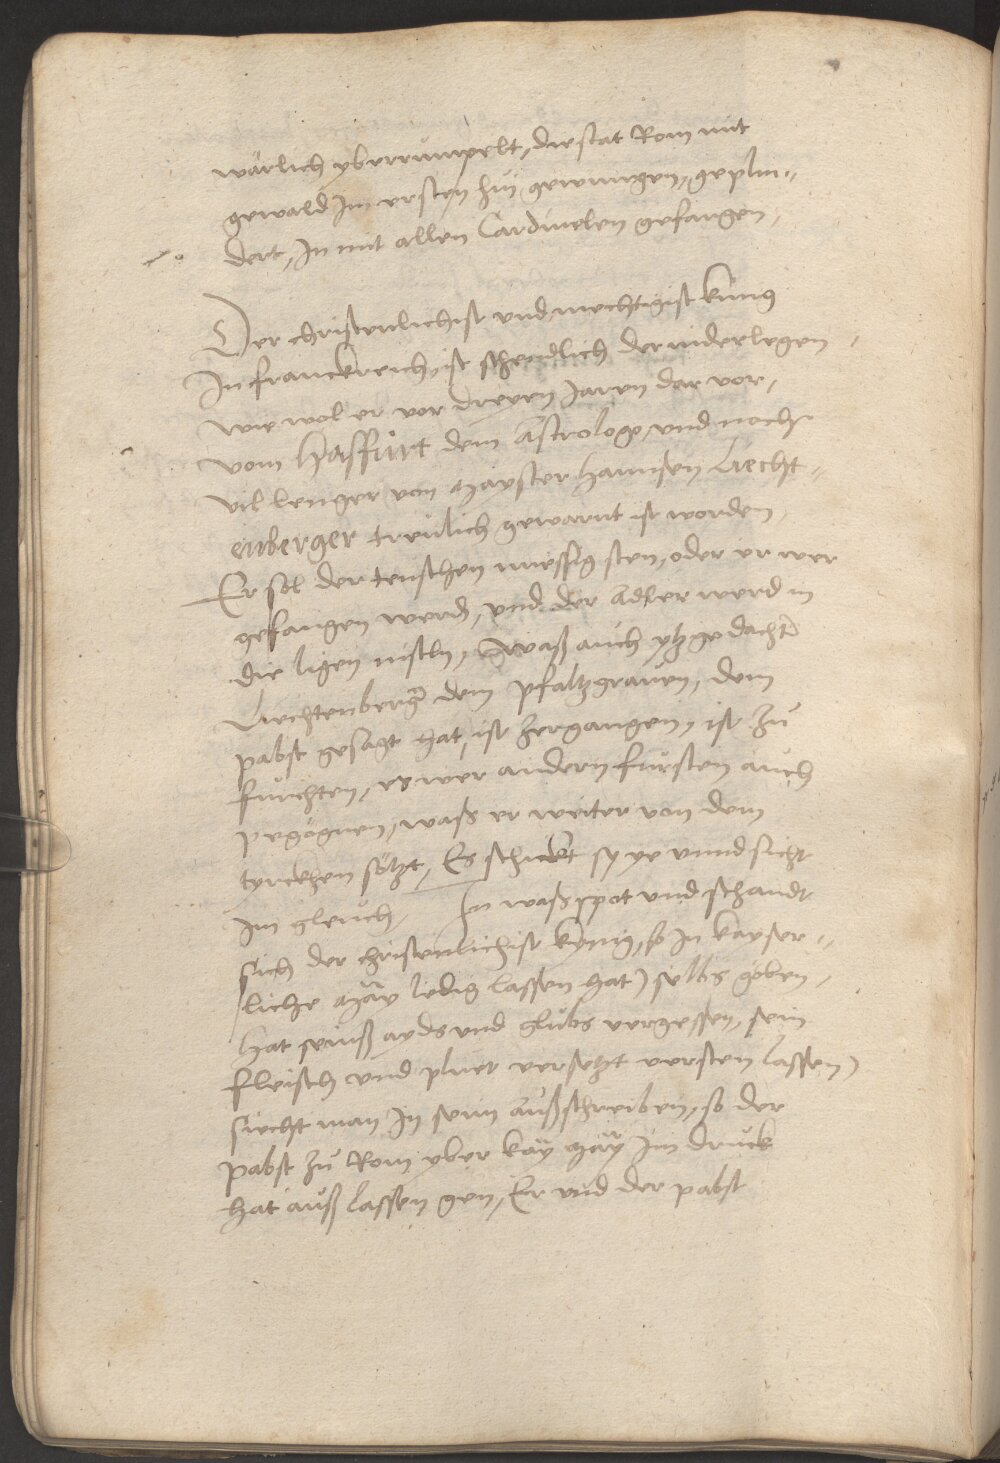 wärlich yberrumpelt, die stat Rom mit
gewald Im ersten hui gewungen, geplin-
dert, In mit allen Cardinelen gefangen,
Der christenlichist und mechtigist kunig
In franckreich, ist schendlich dernider legen,
wie wol er vor dreyen Jaren dar vor,
vom Hasfurt dem Astrologo, und noch
vil lenger von Mayster Hannsen Liecht-
enberger treulich gewarnt ist worden,
Er sol der teuschen muessig sten, oder er wer
gefangen werd, und der Adler werd in
die ligen nisten, Waß auch ytz gedacht
Liechtenberger dem pfaltzgraven, dem
pabst gesagt hat, ist hergangen, ist zu
furchten, es wer andern fursten auch
pegögnen, waß er weiter von dem
tyrckhen sötzt, Es schickt sy ye unnd sicht
Im gleuch, In waß spot und schandt
sich der christenlichist kunig, so In kayser-
liche May ledig lassen hat) selbs göben,
hat seinß ayds und glubs vergessen, sein
fleisch und pluet versetzt versten lassen)
siecht man In seim außschreiben, so der
pabst zu Rom yber kay May Im druck
hat auß lassen gen, Er und der pabst